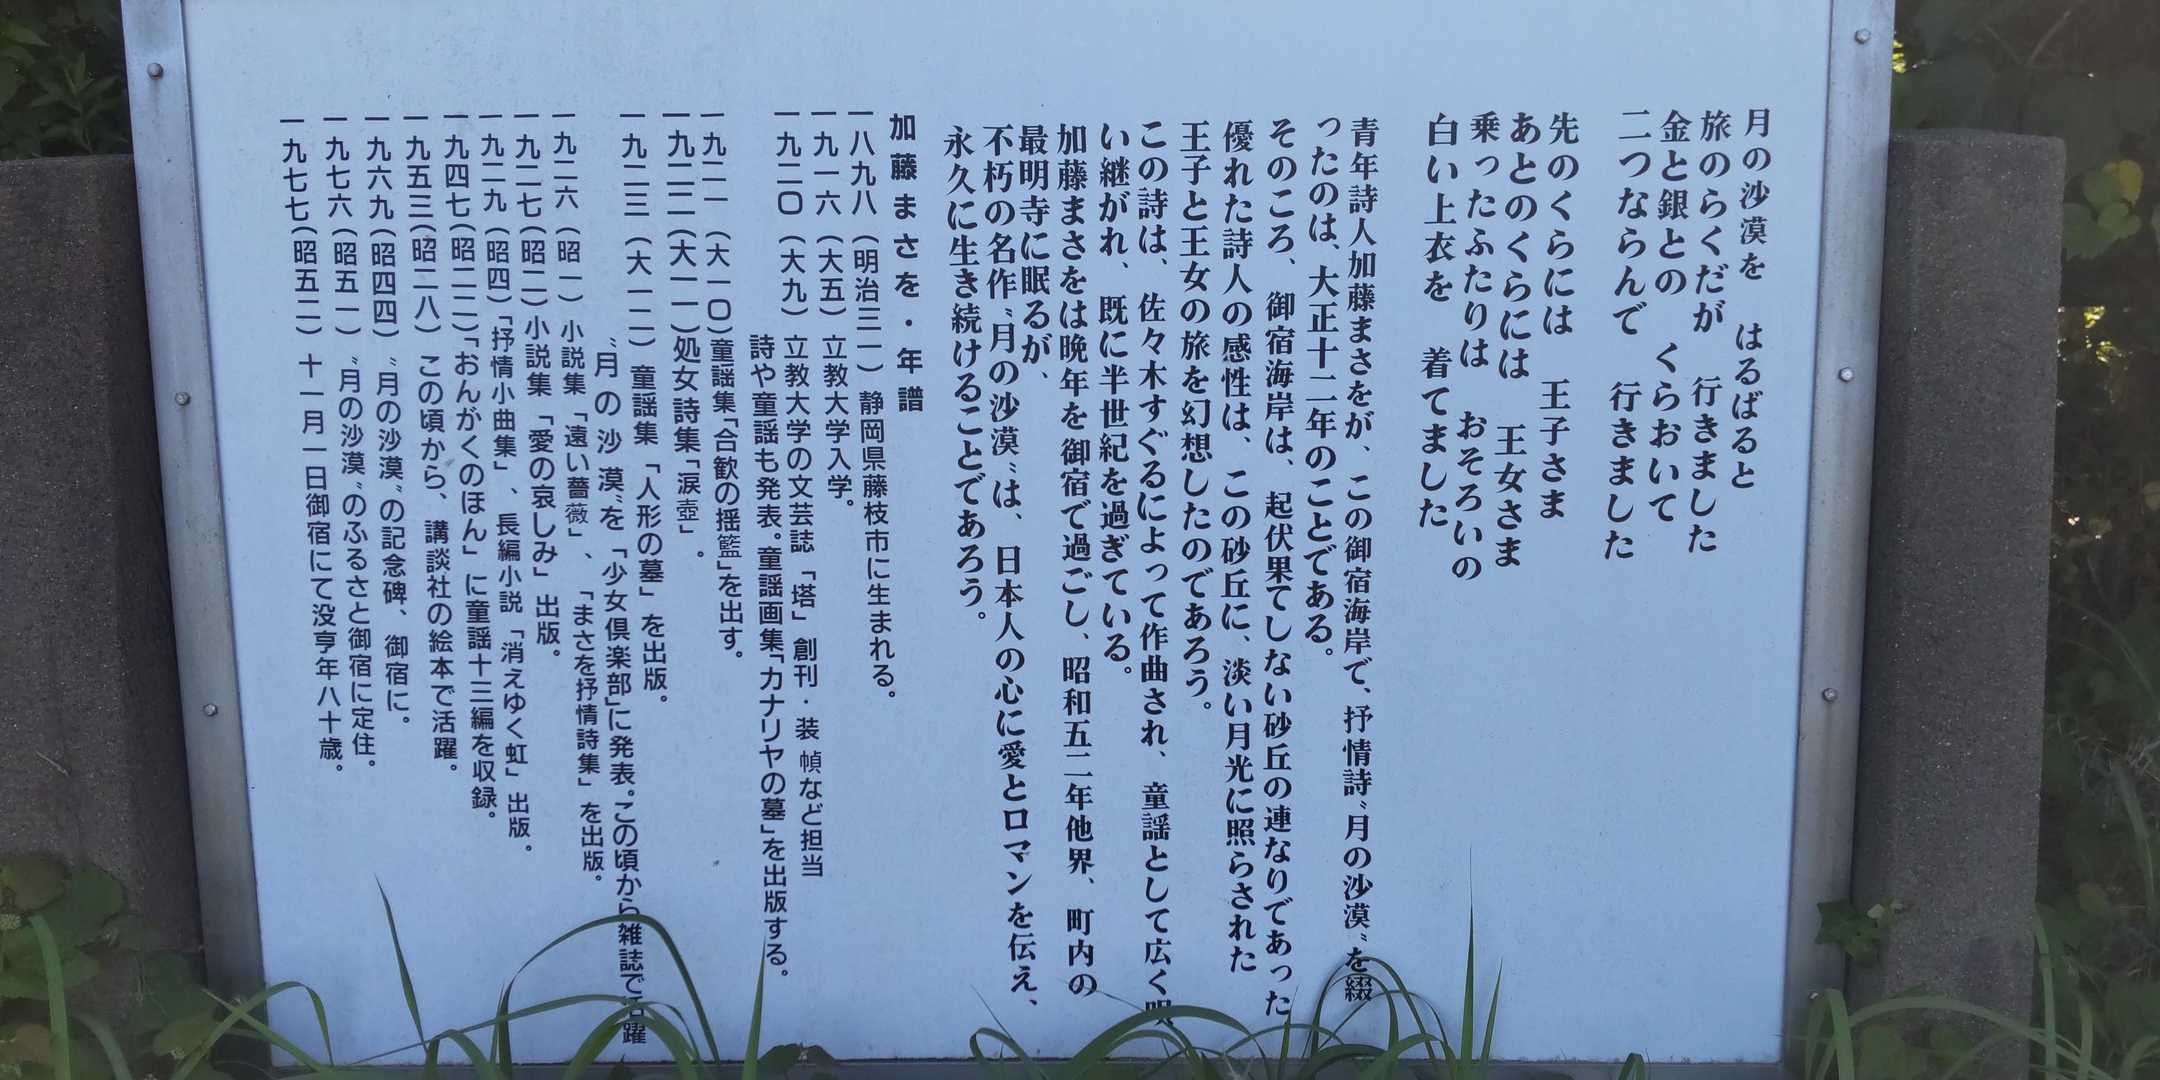 月の沙漠を　はるばると
旅のらくだが　行きました
金と銀との　くらおいて
二つならんで　行きました
先のくらには　王子さま
あとのくらには　王女さま
乗ったふたりは　おそろいの
白い上衣を　着てました
青年詩人加藤まさをが、この御宿海岸で、抒情詩〝月の沙漠〟を綴
ったのは、大正十二年のことである。
そのころ、御宿海岸は、起伏果てしない砂丘の連なりであった
優れた詩人の感性は、この砂丘に、淡い月光に照らされた
王子と王女の旅を幻想したのであろう。
この詩は、佐々木すぐるによって作曲され、童謡として広く唄
い継がれ、既に半世紀を過ぎている。
加藤まさをは晩年を御宿で過ごし、昭和五二年他界、町内の
最明寺に眠るが、
不朽の名作〝月の沙漠〟は、日本人の心に愛とロマンを伝え、
永久に生き続けることであろう。
加藤まさを・年譜
一八九八（明治三一）静岡県藤枝市に生まれる。
一九一六（大五）立教大学入学。
一九二〇（大九）立教大学の文芸誌「塔」創刊・装幀など担当
詩や童謡も発表。童謡画集「カナリヤの墓」を出版する。
一九二一（大一〇）童謡集「合歓の揺籃」を出す。
一九二二（大一一）処女詩集「涙壺」。
一九二三（大一二）童謡集「人形の墓」を出版。
〝月の沙漠〟を「少女倶楽部」に発表。この頃から雑誌で活躍
一九二六（昭一）小説集「遠い薔薇」、「まさを抒情詩集」を出版。
一九二七（昭二）小説集「愛の哀しみ」出版。
一九二九（昭四）「抒情小曲集」、長編小説「消えゆく虹」出版。
一九四七（昭二二）「おんがくのほん」に童謡十三編を収録。
一九五三（昭二八）この頃から、講談社の絵本で活躍。
一九六九（昭四四）〝月の沙漠〟の記念碑、御宿に。
一九七六（昭五一）〝月の沙漠〟のふるさと御宿に定住。
一九七七（昭五二）十一月一日御宿にて没享年八十歳。